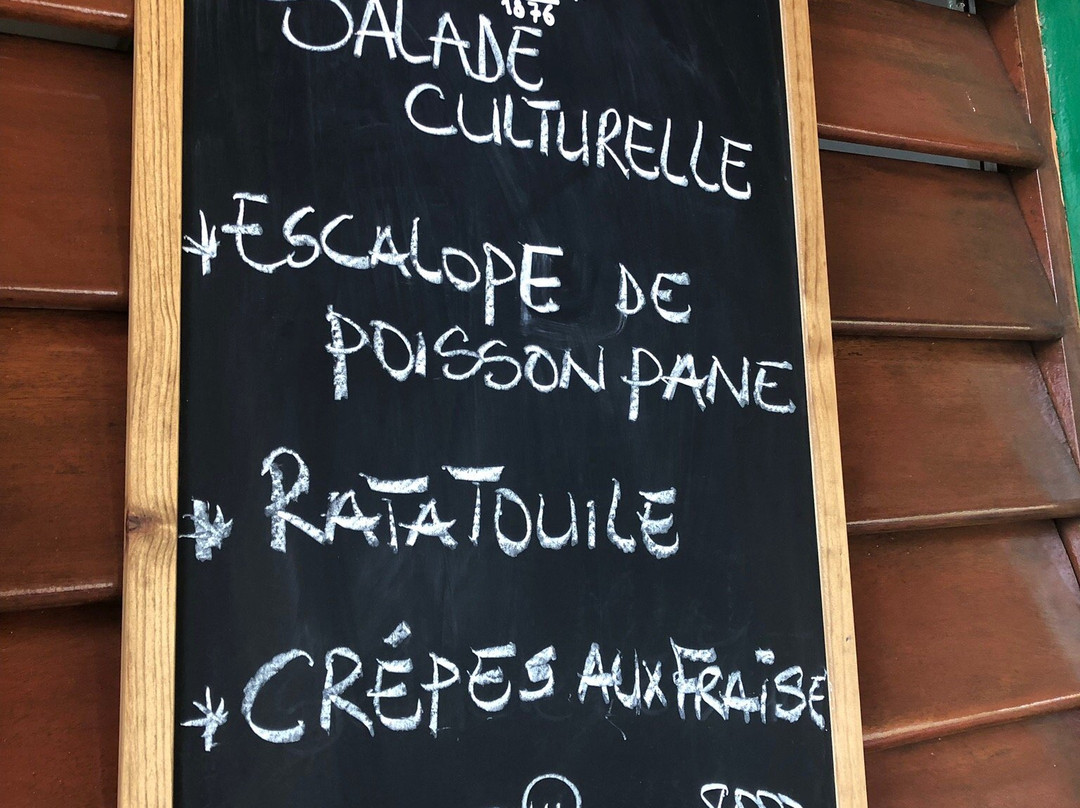 1876
SALADE
CULTURELLE
* ESCALOPE DE
POISSON PANE
* RATATOUILE
* CRÉPES AUX FRAISE